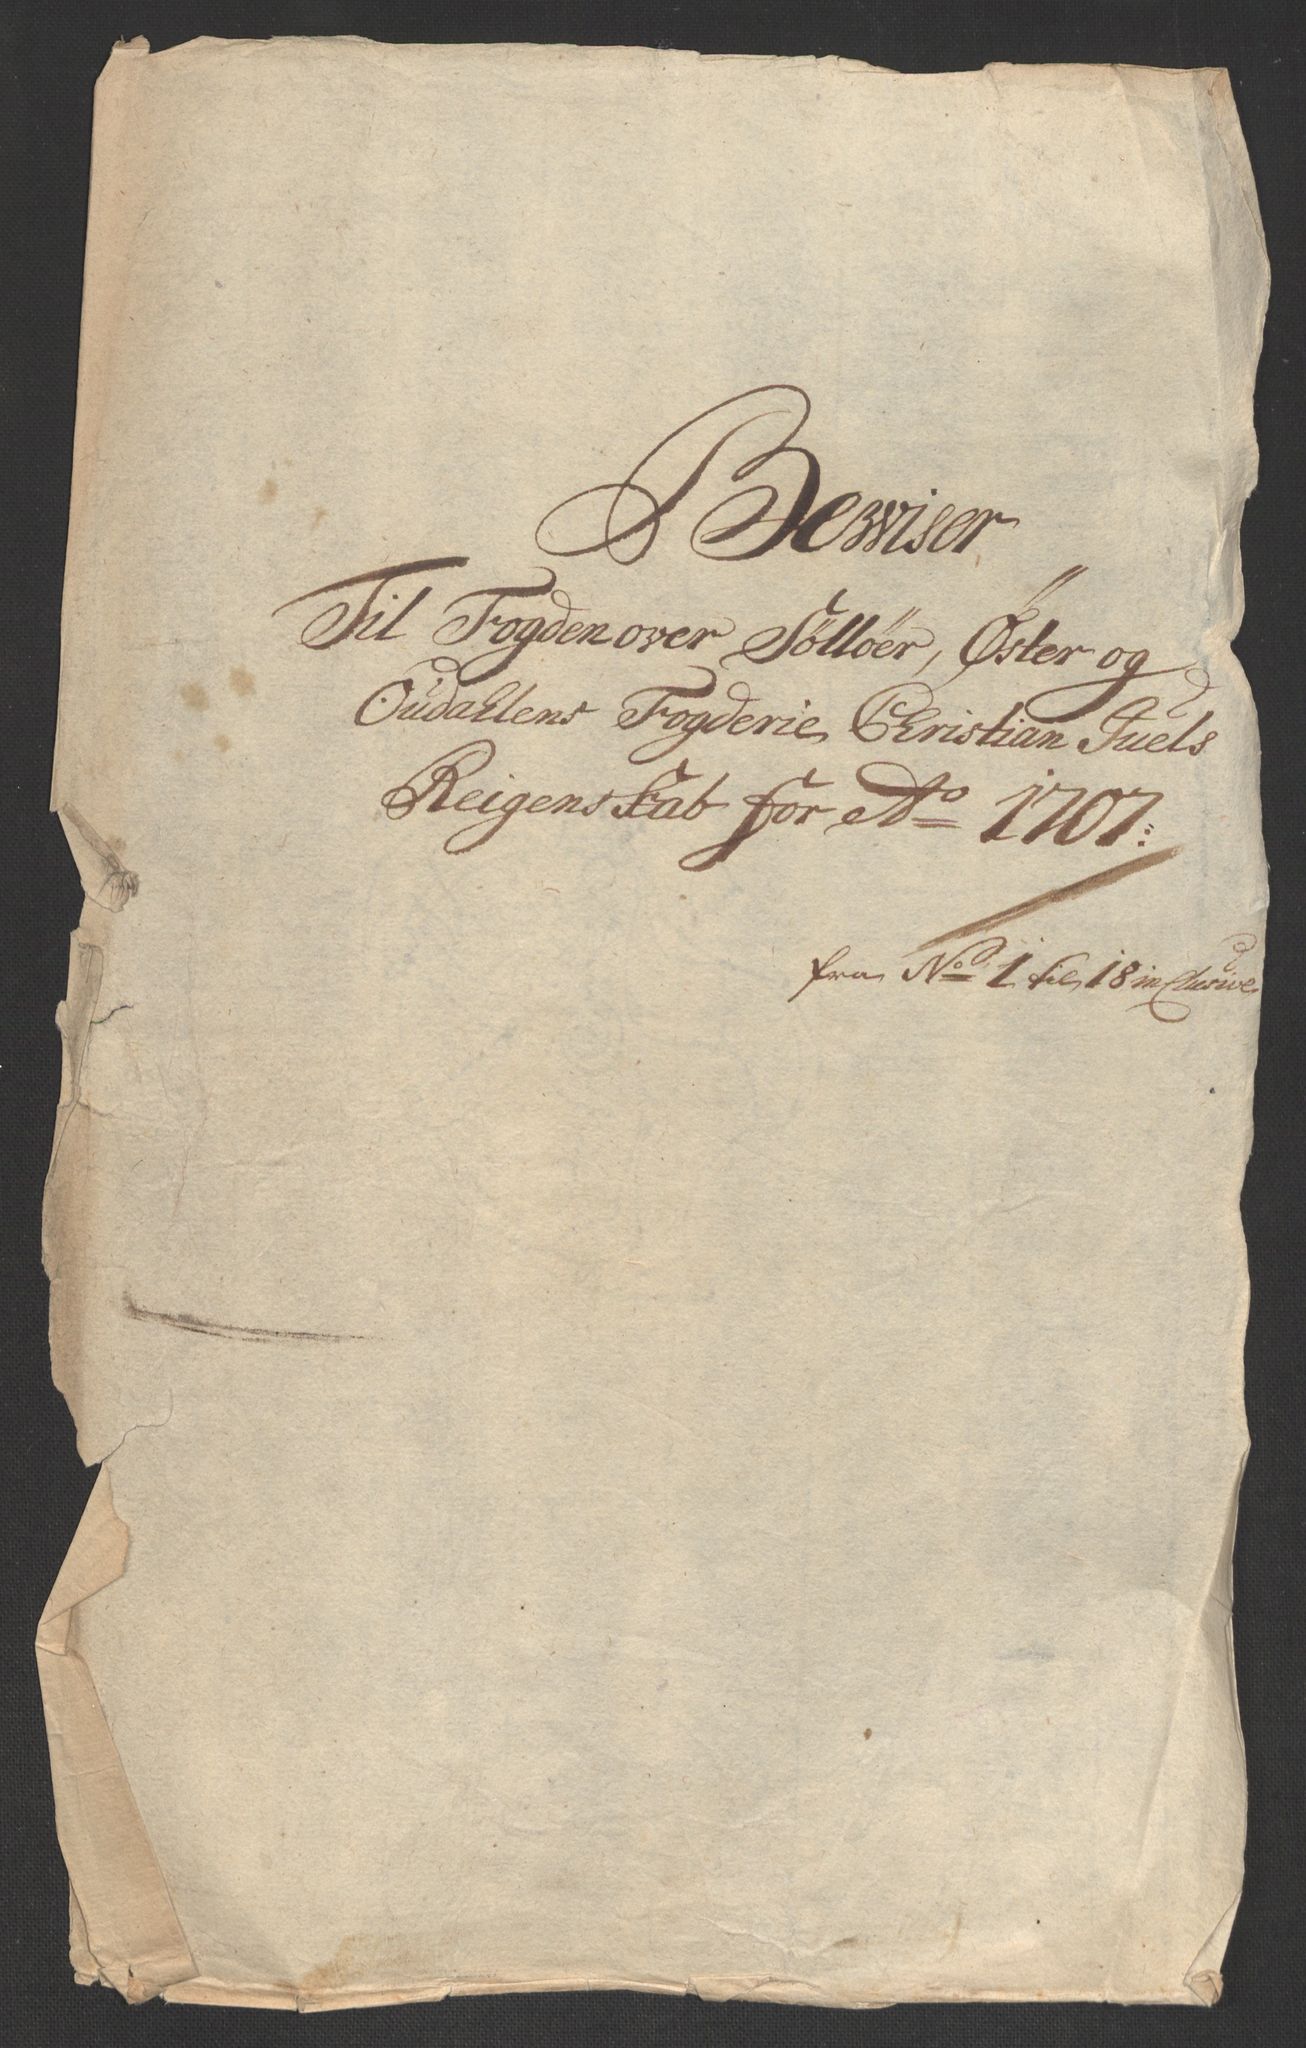 Bewiser
Til Fogden over Sølløer, Øster og
Oudallens Fogderie, Christian Juels
Reigenskab for Ao 1707:
fra No 1 til 18 inclusive